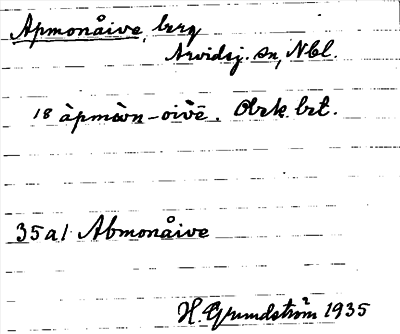 Apmonåive, berg
Arvidsj. sn, Nbl.
18 àpmòn-oivē. Obek. brt.
35a1 Abmonåive
H. Grundström 1935